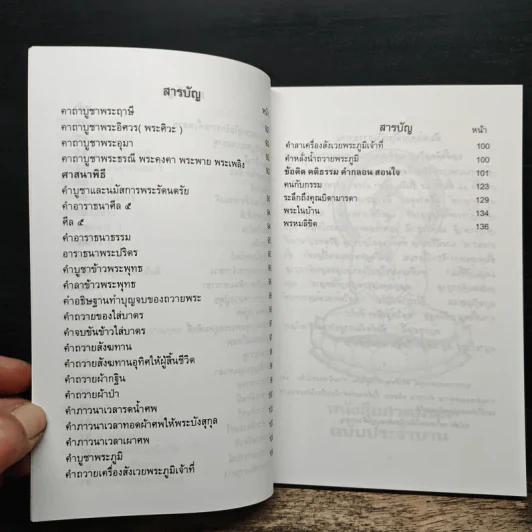 สารบัญ
คาถาบูชาพระฤาษี
คาถาบูชาพระอิศวร( พระศิวะ )
คาถาบูชาพระอุมา
คาถาบูชาพระธรณี พระคงคา พระพาย พระเพลิง
ศาสนาพิธี
คำบูชาและนมัสการพระรัตนตรัย
คำอาราธนาศีล ๕
ศีล ๕
คำอาราธนาธรรม
อาราธนาพระปริตร
คำบูชาข้าวพระพุทธ
คำลาข้าวพระพุทธ
คำอธิษฐานทำบุญจบของถวายพระ
คำถวายของใส่บาตร
คำจบขันข้าวใส่บาตร
คำถวายสังฆทาน
คำถวายสังฆทานอุทิศให้ผู้สิ้นชีวิต
คำถวายผ้ากฐิน
คำถวายผ้าป่า
คำภาวนาเวลารดน้ำศพ
คำภาวนาเวลาทอดผ้าศพให้พระบังสุกุล
คำภาวนาเวลาเผาศพ
คำบูชาพระภูมิ
คำถวายเครื่องสังเวยพระภูมิเจ้าที่
สารบัญ หน้า
คำลาเครื่องสังเวยพระภูมิเจ้าที่ 100
คำหลั่งน้ำถวายพระภูมิ 100
ข้อคิด คติธรรม คำกลอน สอนใจ 101
คนกับกรรม 123
ระลึกถึงคุณบิดามารดา 129
พระในบ้าน 134
พรหมลิขิต 136